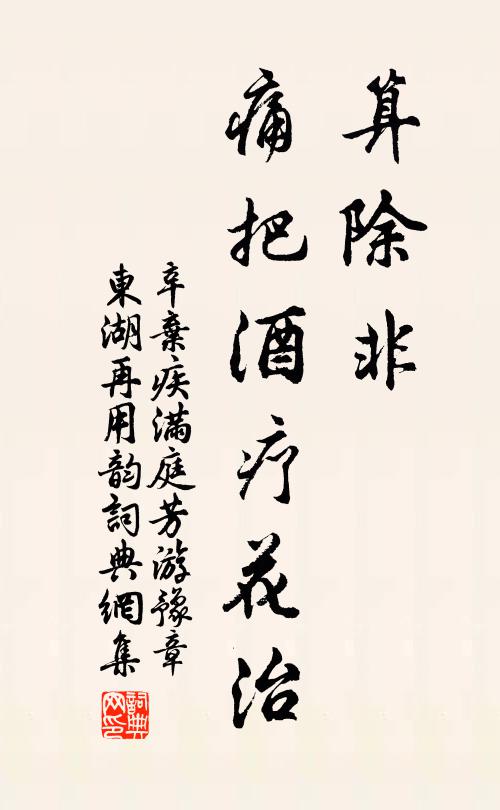 算除非
痛把酒疗花治
辛棄疾满庭芳游豫章
東湖再用韵詞典網集
詞典网印